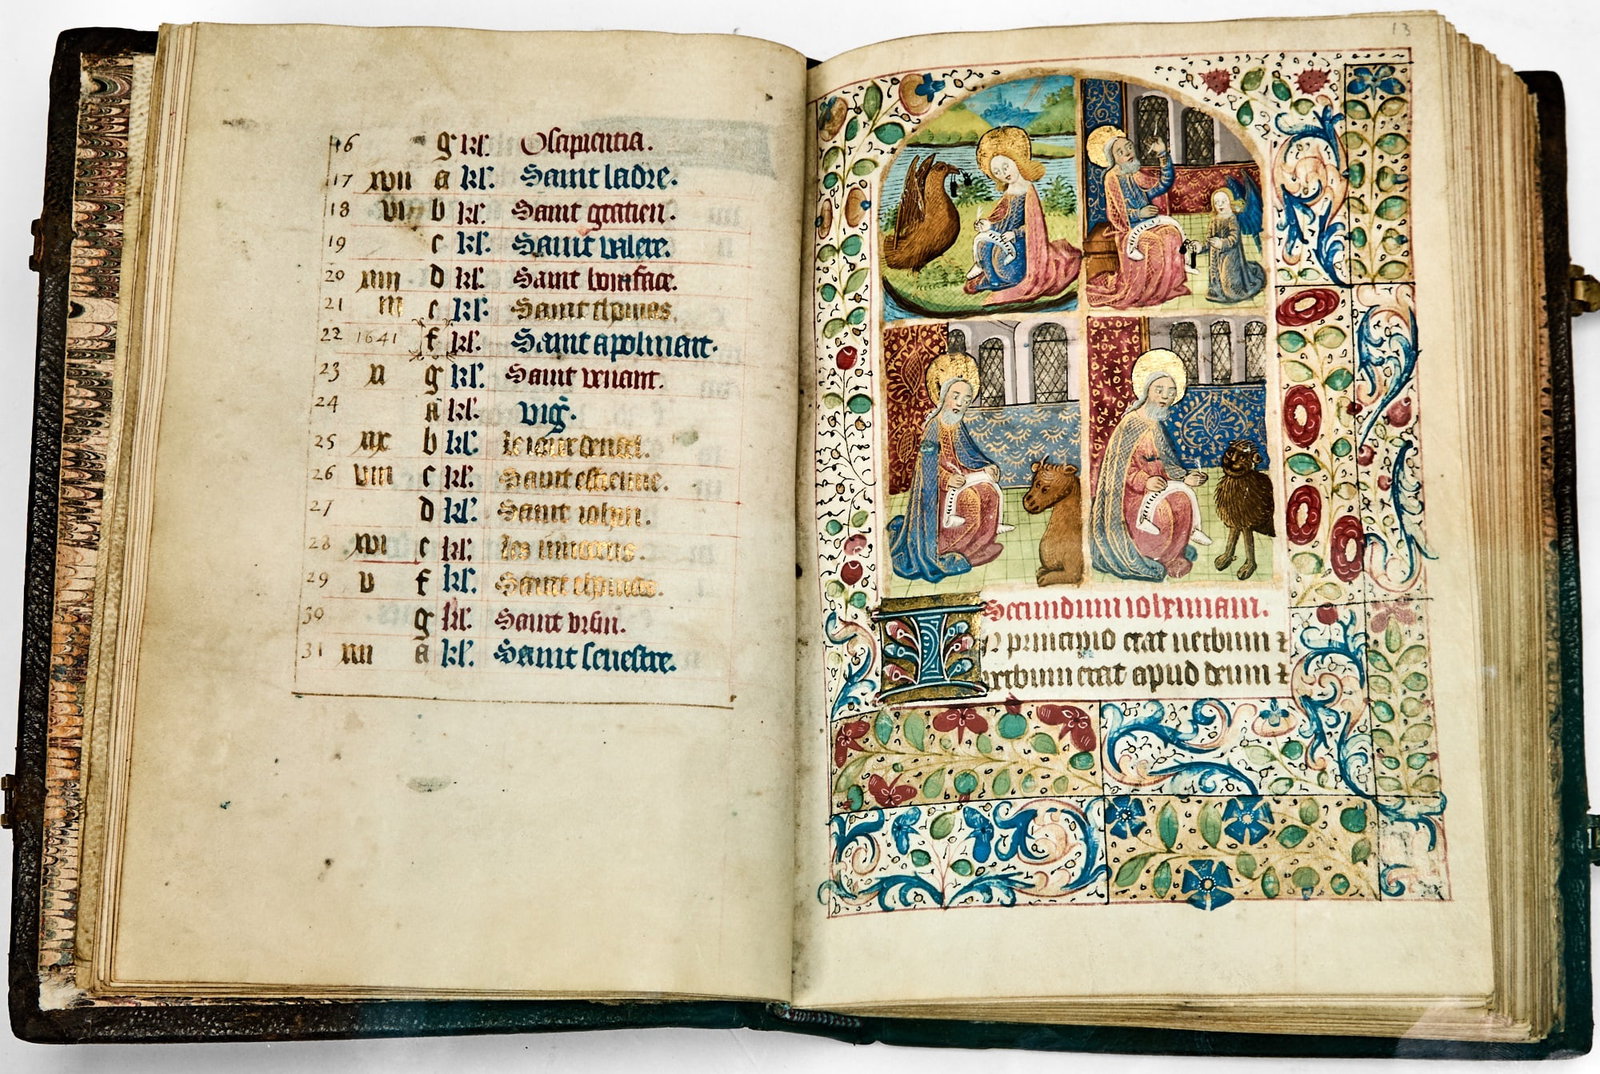 16 g kl. O sapientia.
17 xvii a kl. Saint ladre.
18 vi b kl. Saint gratien.
19 c kl. Saint valere.
20 xiiii d kl. Saint boniface.
21 iii e kl. Saint thomas.
22 1641 f kl. Saint apolinart.
23 xi g kl. Saint venant.
24 a kl. vig.
25 xix b kl. Le iour de noel.
26 viii c kl. Saint estienne.
27 d kl. Saint iohan.
28 xvi e kl. Les innocens.
29 v f kl. Saint thomas.
30 g kl. Saint
31 a kl. Saint seuestre.
13
Secundum iohannam.
In principio erat uerbum ⁊
uerbum erat apud deum ⁊